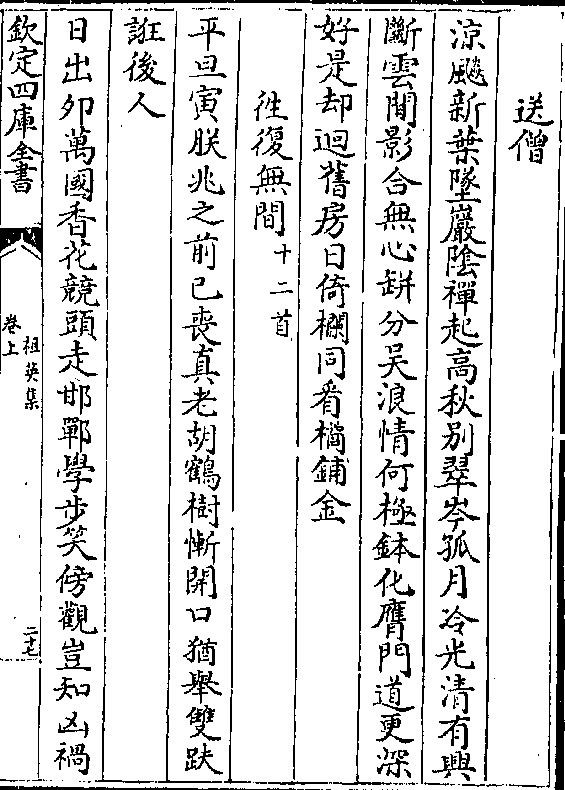 送僧
涼飈新葉墜巖隂禪起高秋别翠岑孤月冷光清有興
斷雲閒影合無心缾分吴浪情何極鉢化鴈門道更深
好是却迴舊房日倚欄同看橘鋪金
徃復無間十二首
平旦寅朕兆之前已喪真老胡鶴樹慚開口猶舉雙趺
誑後人
日出夘萬國香花競頭走邯鄲學步笑傍觀豈知凶禍
欽定四庫全書
祖英集
卷上
二十七